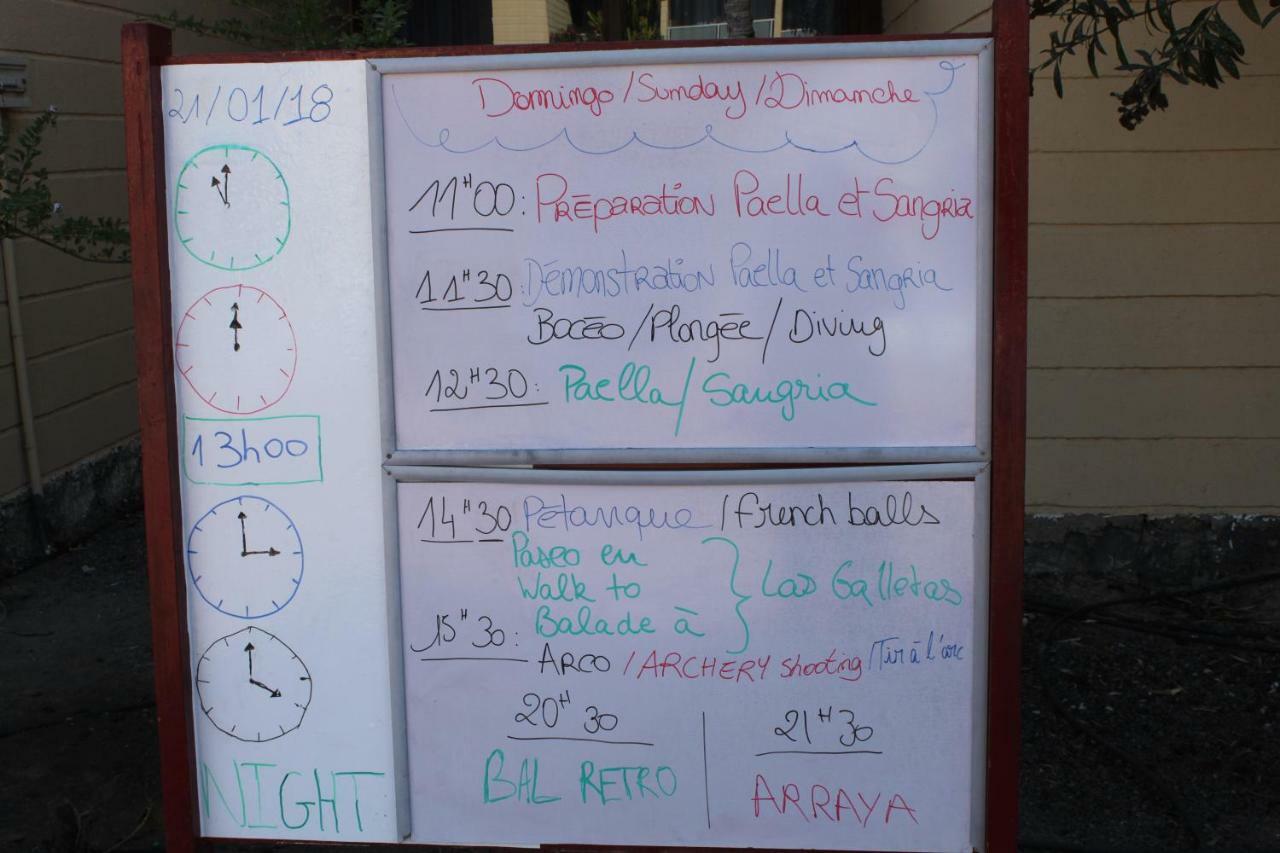 21/01/18
Domingo / Sunday / Dimanche
11H00: PRÉPARATION Paella et Sangria
11H30: DÉMONSTRATION Paella et Sangria
Bocēo / Plongēe / Diving
12H30: Paella / Sangria
13h00
14H30 Petanque / French balls
Paseo en
Walk to } Las Galletas
Balade à
15H30: ARCO / ARCHERY shooting / Tir à l'arc
20H30 | 21H30
BAL RETRO | ARRAYA
NIGHT